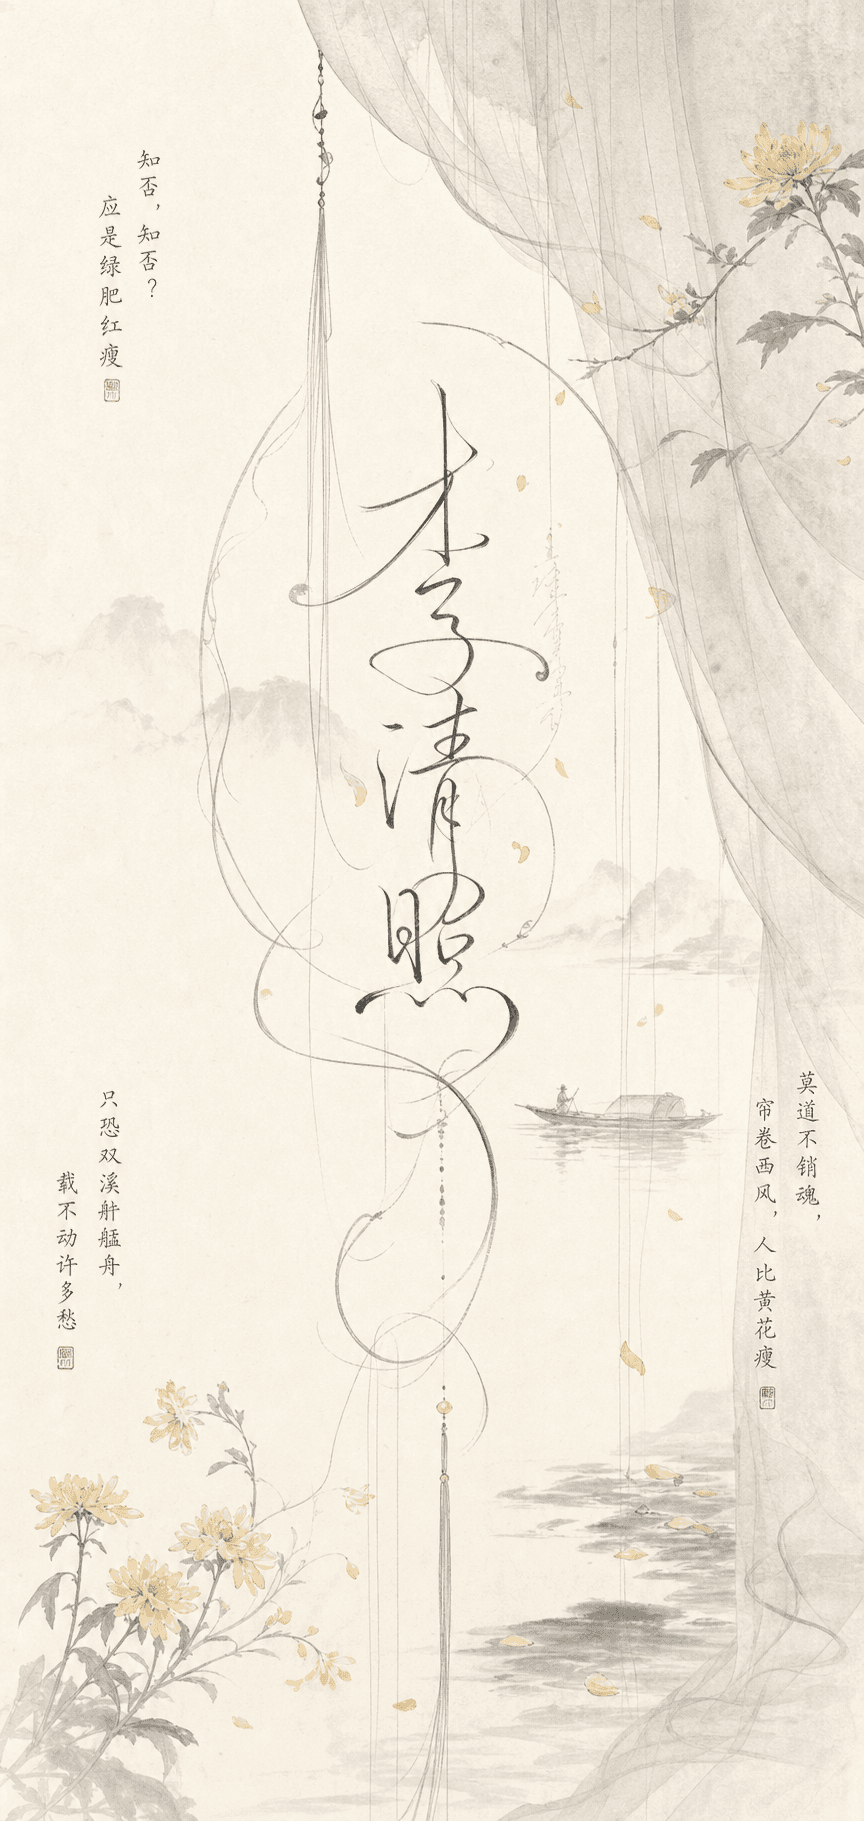 知否，知否？
应是绿肥红瘦
李清照
莫道不销魂，
帘卷西风，人比黄花瘦
只恐双溪舴艋舟，
载不动许多愁